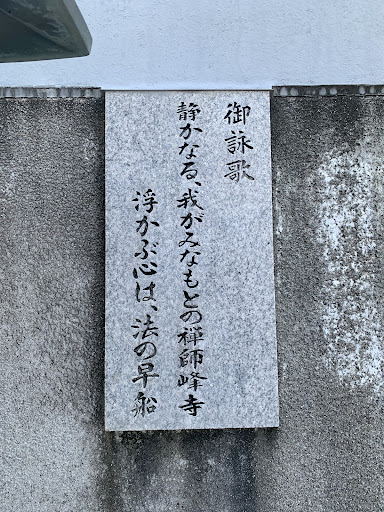 御詠歌
静かなる、我がみなもとの禅師峰寺
浮かぶ心は、法の早船